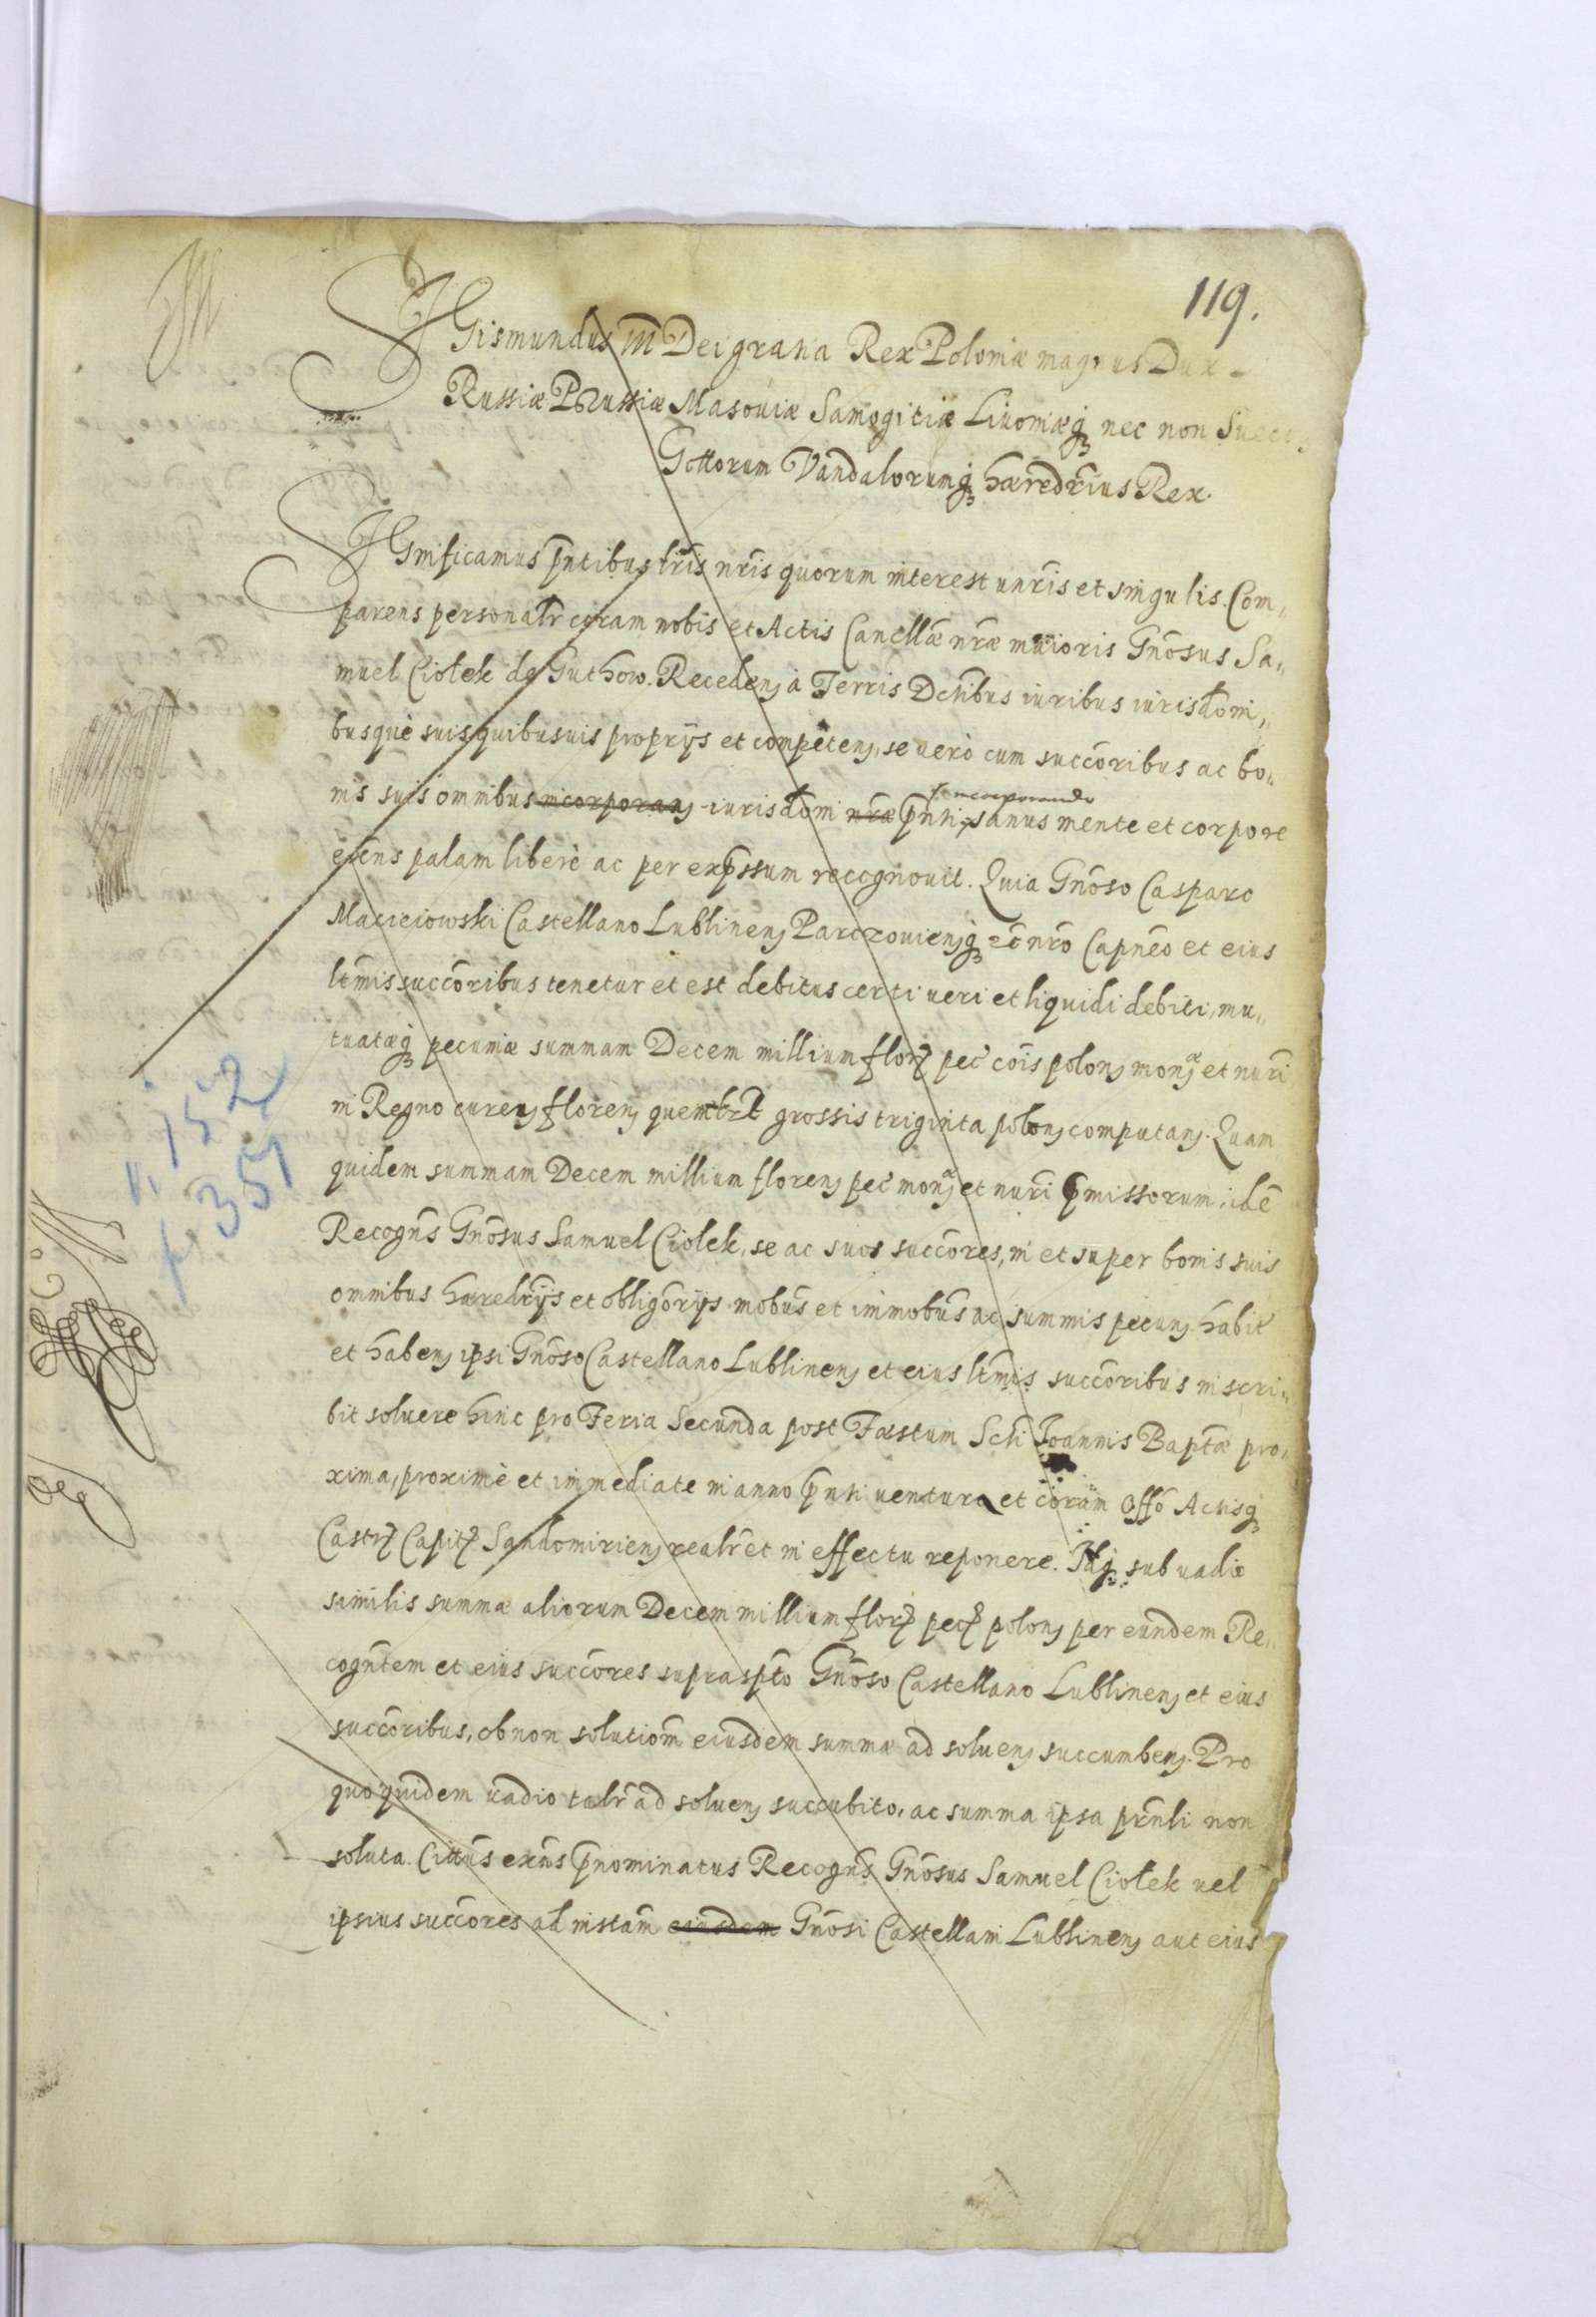 119.
SIGismundus III Dei gratia Rex Poloniæ magnus Dux
Russiæ Prussiæ Masouiæ Samogitiæ Liuoniæq₃ nec non Sueco
Gottorum Vandalorumq₃ hæredrius Rex.
SIGnificamus pntibus lris nris quorum interest unris et singulis. Com„
parens personalr coram nobis et Actis Cancllæ nræ maioris Gnosus Sa„
muel Ciołek de Guthow. Recedens à Terris Dctibus iuribus iurisdoni„
busquè suis quibusuis proprijs et competens, se uerò cum succoribus ac bo„
nis suis omnibus incorporans iurisdoni nræ pnti,
incorporando
sanus mente et corpore
exens palam liberè ac per exprssum recognouit. Quia Gnoso Casparo
Macieiowski Castellano Lublinens Parczouiensq₃ etc nro Capneo et eius
ltmis succoribus tenetur et est debitus certi ueri et liquidi debiti, mu„
tuatæq₃ pecuniæ summam Decem millium flor pec cois polons mon et nuri
in Regno curens florens quemlibet grossis triginta polons computans. Quam
quidem summam Decem millium florens pec mon et nuri pmissorum, ide
Recogns Gnosus Samuel Ciołek, se ac suos succores, in et super bonis suis
omnibus hæredrijs et obligorijs mobus et immobus ac summis pecuns habit
et habens ipsi Gnoso Castellano Lublinens et eius ltmis succoribus inscri„
bit soluere hinc pro Feria Secunda post Fæstum Scti Joannis Baptæ pro„
xima, proximè et immediate in anno pnti uenturo et coram Offo Actisq₃
Castr Capit Sandomiriens realr et in effectu reponere. Idq₃ sub uadio
similis summæ aliorum Decem millium flor pec polons per eundem Re„
cogntem et eius succores supraspto Gnoso Castellano Lublinens et eius
succoribus, ob non solutiom eiusdem summæ ad soluens succumbens. Pro
quo quidem uadio talr ad soluens succubito, ac summa ipsa prnli non
soluta. Cittus exns pnominatus Recogns Gnosus Samuel Ciołek uel
ipsius succores ad instam eiusdem Gnosi Castellani Lublinens aut eius
152
p 351